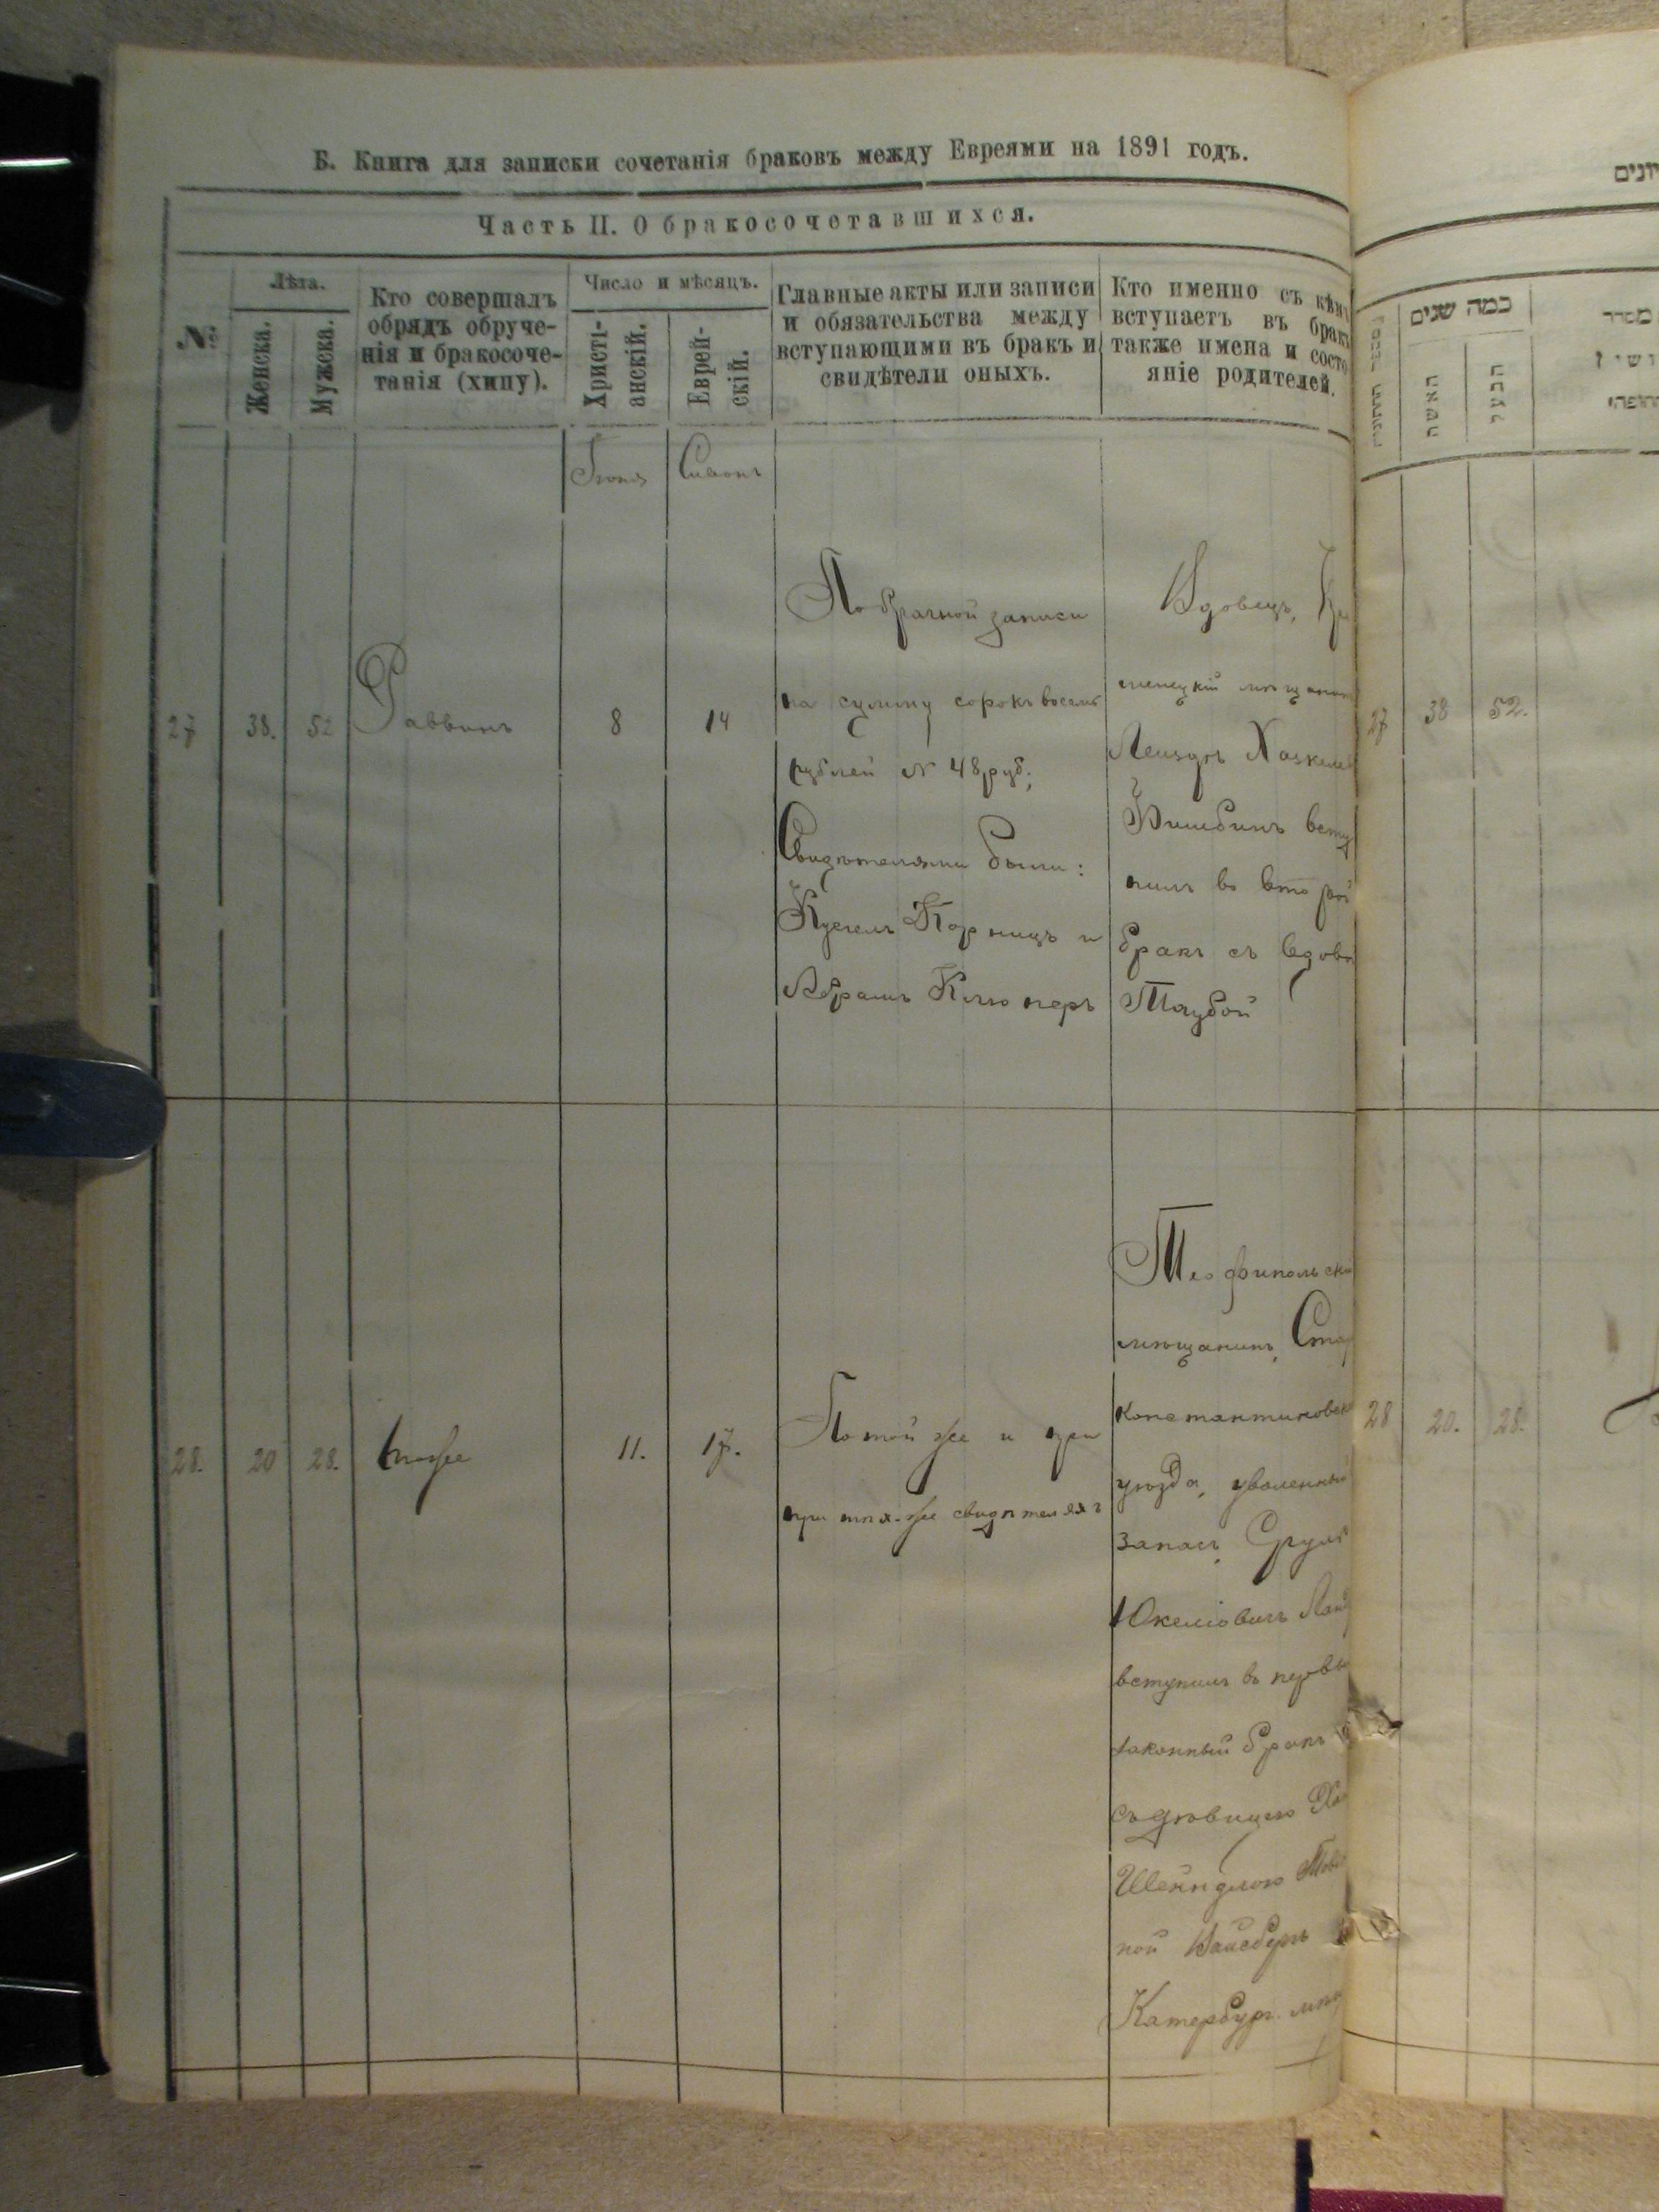 Б. Книга для записки сочетанія браковъ между Евреями на 1891 годъ.
Часть II. О бракосочетавшихся.
№
Лѣта.
Женска.
Мужска.
Кто совершалъ
обрядъ обруче-
нія и бракосоче-
танія (хипу).
Число и мѣсяцъ.
Христі-
анскій.
Еврей-
скій.
Главные акты или записи
и обязательства между
вступающими въ бракъ и
свидѣтели оныхъ.
Кто именно съ кѣмъ
вступаетъ въ бракъ
также имена и состо
яніе родителей.
Іюня
Сивонъ
27
38.
52
Раввинъ
8
14
По брачной записи
на сумму сорокъ восемь
рублей № 48 руб;
Свидѣтелями были:
Кусель Корницъ и
Абрамъ Клюперъ
Вдовецъ,
менецкій мѣщанинъ
Лейзоръ Хаскеле
всту
пилъ во второй
бракъ съ вдово
Таубой
28.
20
28.
тоже
11.
17.
По той же и при
при тѣхъ-же свидѣтеляхъ
Теофипольскій
мѣщанинъ, Ста
константиновска
уѣзда, уволенный
запасъ, Сруль
Юкеліовичъ Лан
вступилъ въ первы
законный бракъ
съ дѣвицею Ха
Шейндлою
ной Вайсберъ
Катербург. мѣщ
כמה שנים
האשה
הבעל
27
38
52.
28
20.
28.